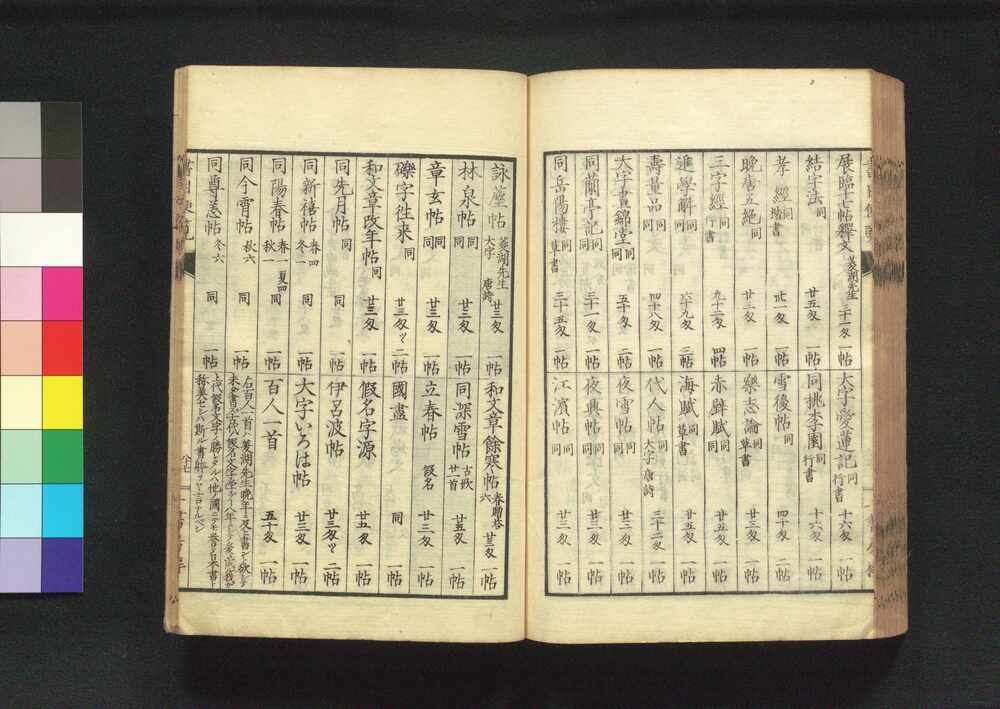 展臨十七帖釋文 菱湖先生 三十一匁 一帖
結字法 同 廿五匁 一帖
孝經 同 楷書 一帖
晩唐五絕 同 廿三匁 一帖
三字經 同 行書 九十二匁 四帖
進學解 同同 六十九匁 三帖
壽量品 同同 四十八匁 一帖
大字晝錦堂 同同 五十匁 二帖
同蘭亭記 同同 三十一匁 一帖
同岳陽樓 同 草書 三十五匁 一帖
大字愛蓮記 同 行書 十六匁 一帖
同桃李園 同 行書 十六匁 一帖
雪後帖 同 四十匁 二帖
樂志論 同 草書 廿三匁 一帖
赤壁賦 同同 廿五匁 一帖
海賦 同 草書 廿五匁 一帖
代人帖 同 大字 唐詩 三十二匁 一帖
夜雪帖 同同 廿三匁 一帖
夜興帖 同同 廿三匁 一帖
江濱帖 同同 廿三匁 一帖
詠塵帖 菱湖先生 大字 唐詩 廿三匁 一帖
林泉帖 同同 廿三匁 一帖
章玄帖 同同 廿三匁 一帖
磔字徃来 同 廿三匁ヅヽ 二帖
和文章改年帖 同 廿三匁 一帖
同先月帖 同 同 一帖
同新禧帖 春四 冬一 同 一帖
同陽春帖 春一 夏四 秋一 同 一帖
同今宵帖 秋六 同 一帖
同尊恙帖 冬六 同 一帖
和文章餘寒帖 春贈答六 廿三匁 一帖
同深雪帖 古歌廿一首 廿五匁 一帖
立春帖 假名 廿三匁 一帖
國盡 同 一帖
假名字源 廿五匁 一帖
伊呂波帖 廿三匁ヅヽ 二帖
大字いろは帖 廿三匁 一帖
百人一首 五十匁 一帖